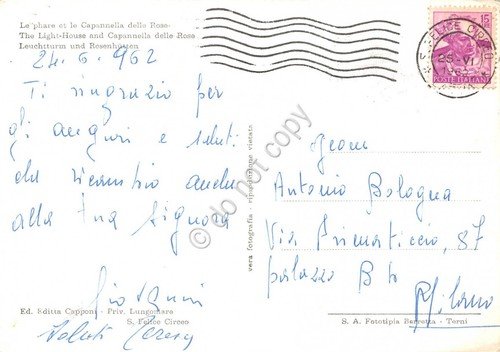 Le phare et le Capannella delle Rose
The Light-House and Capannella delle Rose
Leuchtturm und Rosenhütten
24.6.962
Ti ringrazio per
gli auguri e saluti
che ricambio anche
alla tua Signora
Giovanni
Saluti Teresa
Ed. Editta Capponi - Priv. Lungomare
S. Felice Circeo
vera fotografia - riproduzione vietata
S. FELICE CIRCEO
25-VI
1962
15
POSTE ITALIANE
Geom
Antonio Bologna
Via Primaticcio, 87
palazzo B
Milano
S. A. Fototipia Berretta - Terni
do not copy